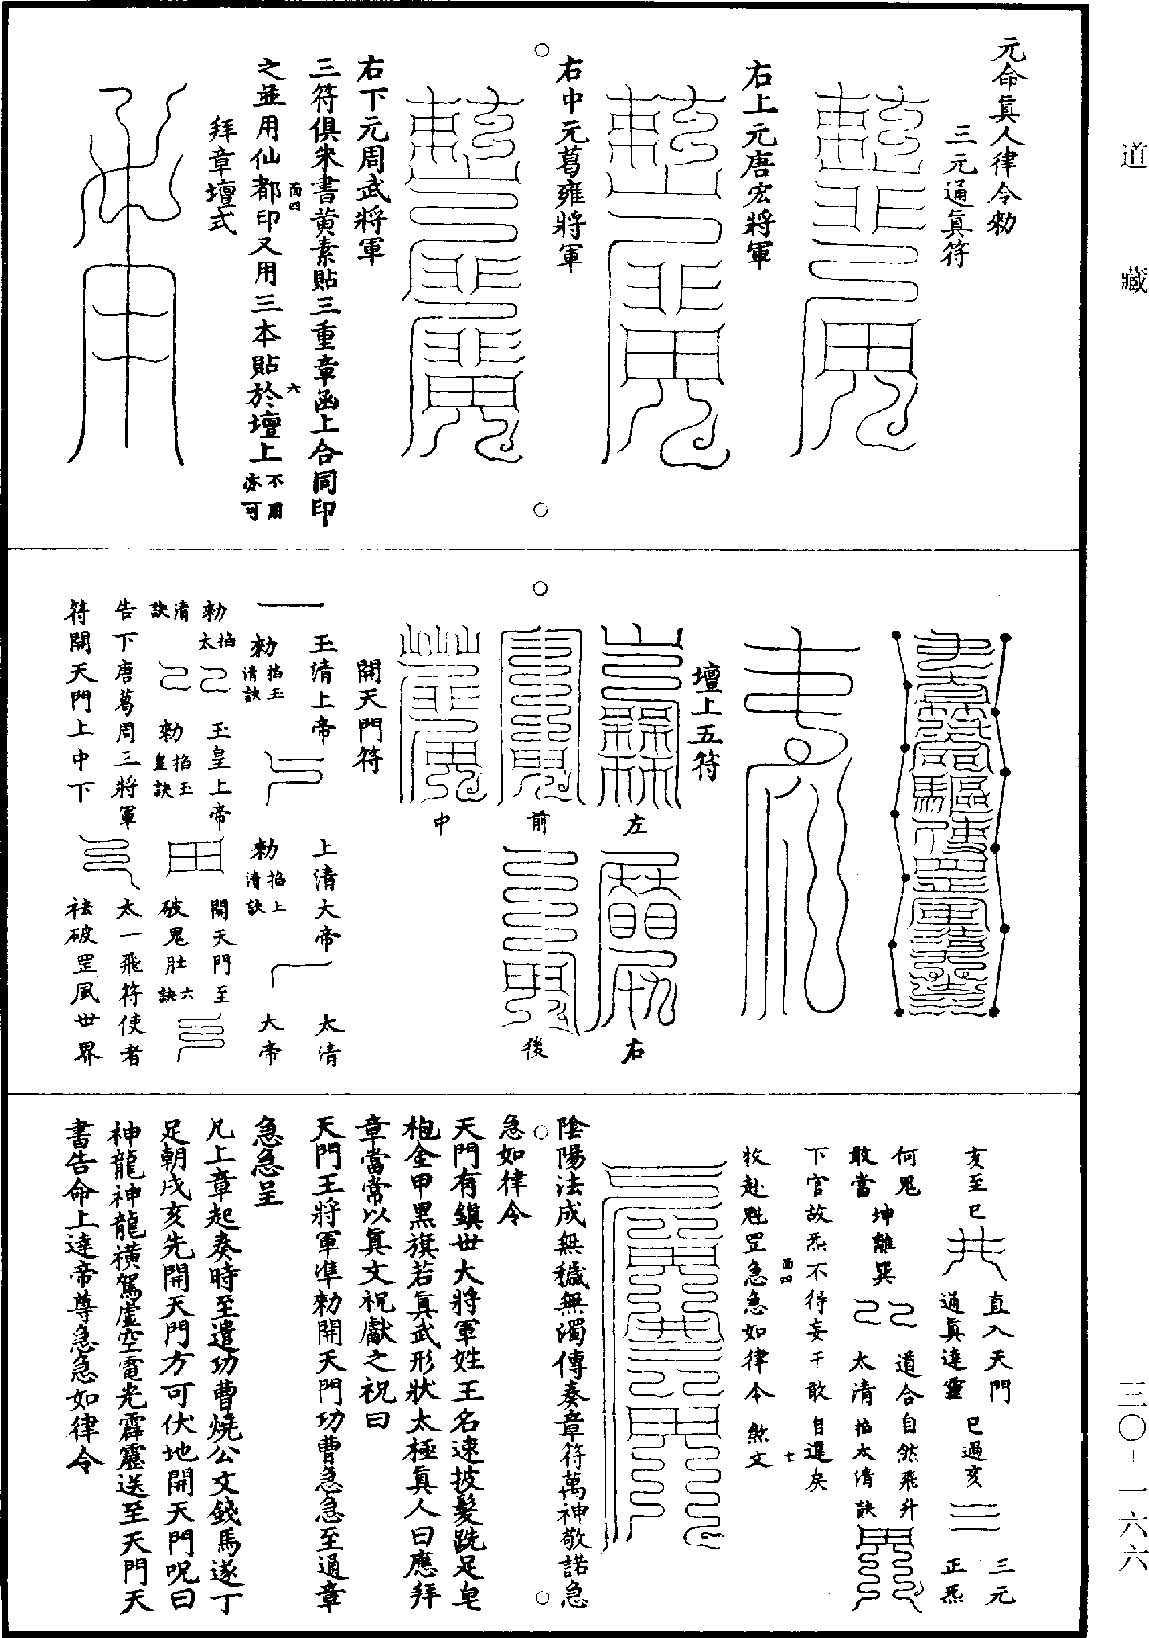 道藏
三〇-一六六
元命眞人律令勑
三元通眞符
右上元唐宏將軍
右中元葛雍將軍
右下元周武將軍
三符俱朱書黄素貼三重章函上合同印
之並用仙都印又用三本貼於壇上不用亦可
西四
六
拜章壇式
壇上五符
左
右
前
後
中
開天門符
玉清上帝
上清大帝
太清
勑掐玉清訣
勑掐上清訣
大帝
勑掐太清訣
玉皇上帝
開天門至
勑掐玉皇訣
破鬼肚六訣
告下唐葛周三將軍
太一飛符使者
符開天門上中下
祛破罡風世界
亥至巳
直入天門
通眞達靈
巳過亥
三元
正炁
何鬼敢當
坤離巽
道合自然飛升
太清掐太清訣
下官故炁不得妄干敢自還矣
收赴魁罡急急如律令
煞文
西四
七
陰陽法成無穢無濁傳奏章符萬神敬諾急
急如律令
天門有鎮世大將軍姓王名速披髮跣足皂
袍金甲黑旗若眞武形狀太極眞人曰應拜
章當常以眞文祝獻之祝曰
天門王將軍準勑開天門功曹急急至通章
急急呈
凡上章起奏時至遣功曹燒公文錢馬遂丁
足朝戌亥先開天門方可伏地開天門呪曰
神龍神龍横駕虛空電光霹靂送至天門天
書告命上達帝尊急急如律令